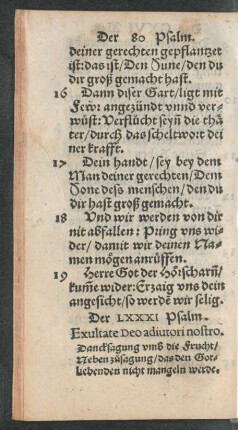 Der 80 Psalm.
deiner gerechten gepflantzet
ist: das ist / Den June / den du
dir groß gemacht hast.
16 Dann diser Gart / ligt mit
Fewr angezündt vnnd ver-
wüst: Verflücht seyn die thä-
ter / durch das scheltwort dei
ner krafft.
17 Dein handt / sey bey dem
Man deiner gerechten / Dem
Sone dess menschen / den du
dir hast groß gemacht.
18 Vnd wir werden von dir
nit abfallen: Pring vns wi-
der / damit wir deinen Na-
men mögen anrüffen.
19 Herre Got der Hörscharn /
kum̃ wider: Erzaig vns dein
angesicht / so werdẽ wir selig.
Der LXXXI Psalm.
Exultate Deo adiutori nostro.
Dancksagung vmb die Frucht /
Neben zůsagung / das den Got-
liebenden nicht mangeln werde.